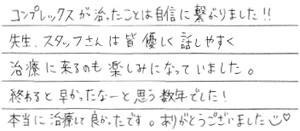 コンプレックスが治ったことは自信に繋がりました!!
先生、スタッフさんは皆優しく話しやすく
治療に来るのも楽しみになっていました。
終わると早かったなーと思う数年でした!
本当に治療して良かったです。ありがとうございました